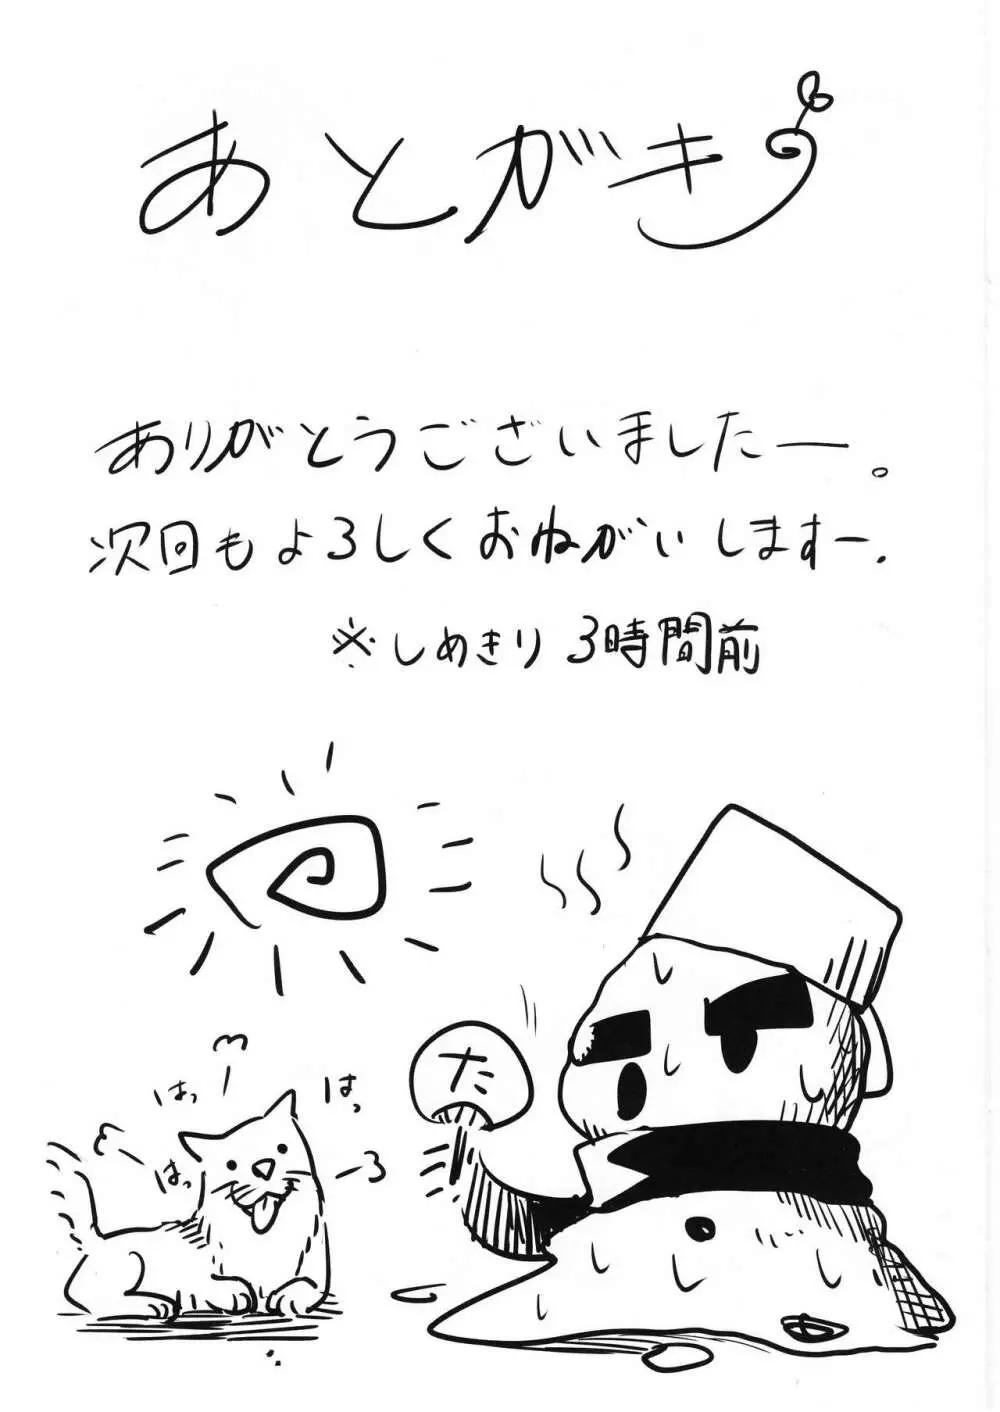 あとがき
ありがとうございましたー。
次回もよろしくおねがいしますー.
※しめきり 3時間前
た
はっ
はっ
はっ